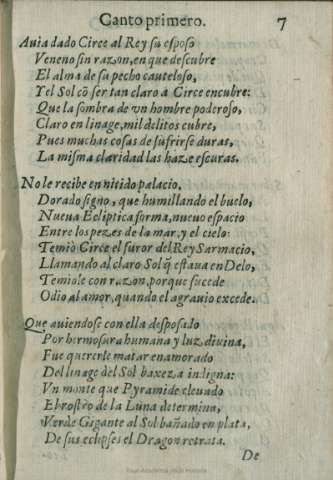 Canto primero. 7
Auia dado Circe al Rey su esposo
Veneno sin razon, en que descubre
El alma de su pecho cauteloso,
Y el Sol cõ ser tan claro a Circe encubre:
Que la sombra de vn hombre poderoso,
Claro en linage, mil delitos cubre,
Pues muchas cosas de sufrirse duras,
La misma claridad las haze escuras.
No le recibe en nitido palacio,
Dorado signo, que humillando el buelo,
Nueua Ecliptica forma, nueuo espacio
Entre los pezes de la mar, y el cielo:
Temiò Circe el furor del Rey Sarmacio,
Llamando al claro Sol q̃ estaua en Delo,
Temiole con razon, porque sucede
Odio al amor, quando el agrauio excede.
Que auiendose con ella desposado
Por hermosura humana y luz diuina,
Fue quererle matar enamorado
Del linage del Sol baxeza indigna:
Vn monte que Pyramide eleuado
El rostro de la Luna determina,
Verde Gigante al Sol bañado en plata,
De sus eclipses el Dragon retrata.
De
Real Academia de la Historia